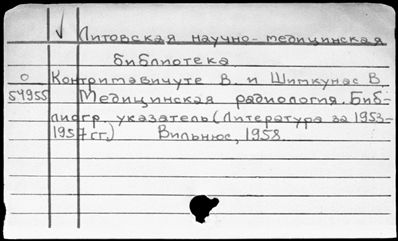 √ Литовская научно-медицинская
библиотека
О Контримавичуте В. и Шимкунас В.
54955 Медицинская радиология. Биб-
лиогр. указатель (Литература за 1953-
1957 гг.) Вильнюс, 1958.